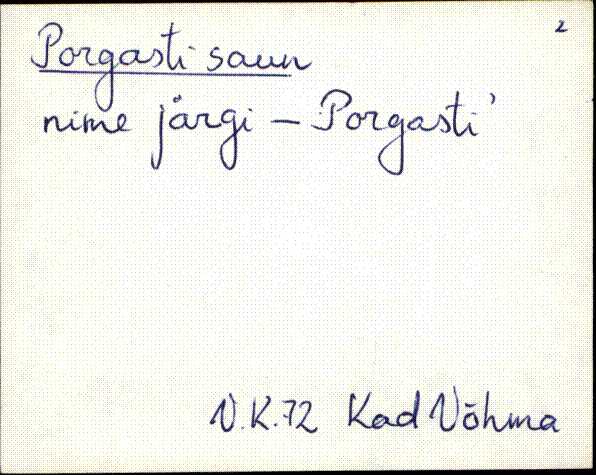 2
Porgasti saun
nime järgi – Porgasti'
V.K.72 Kad Võhma